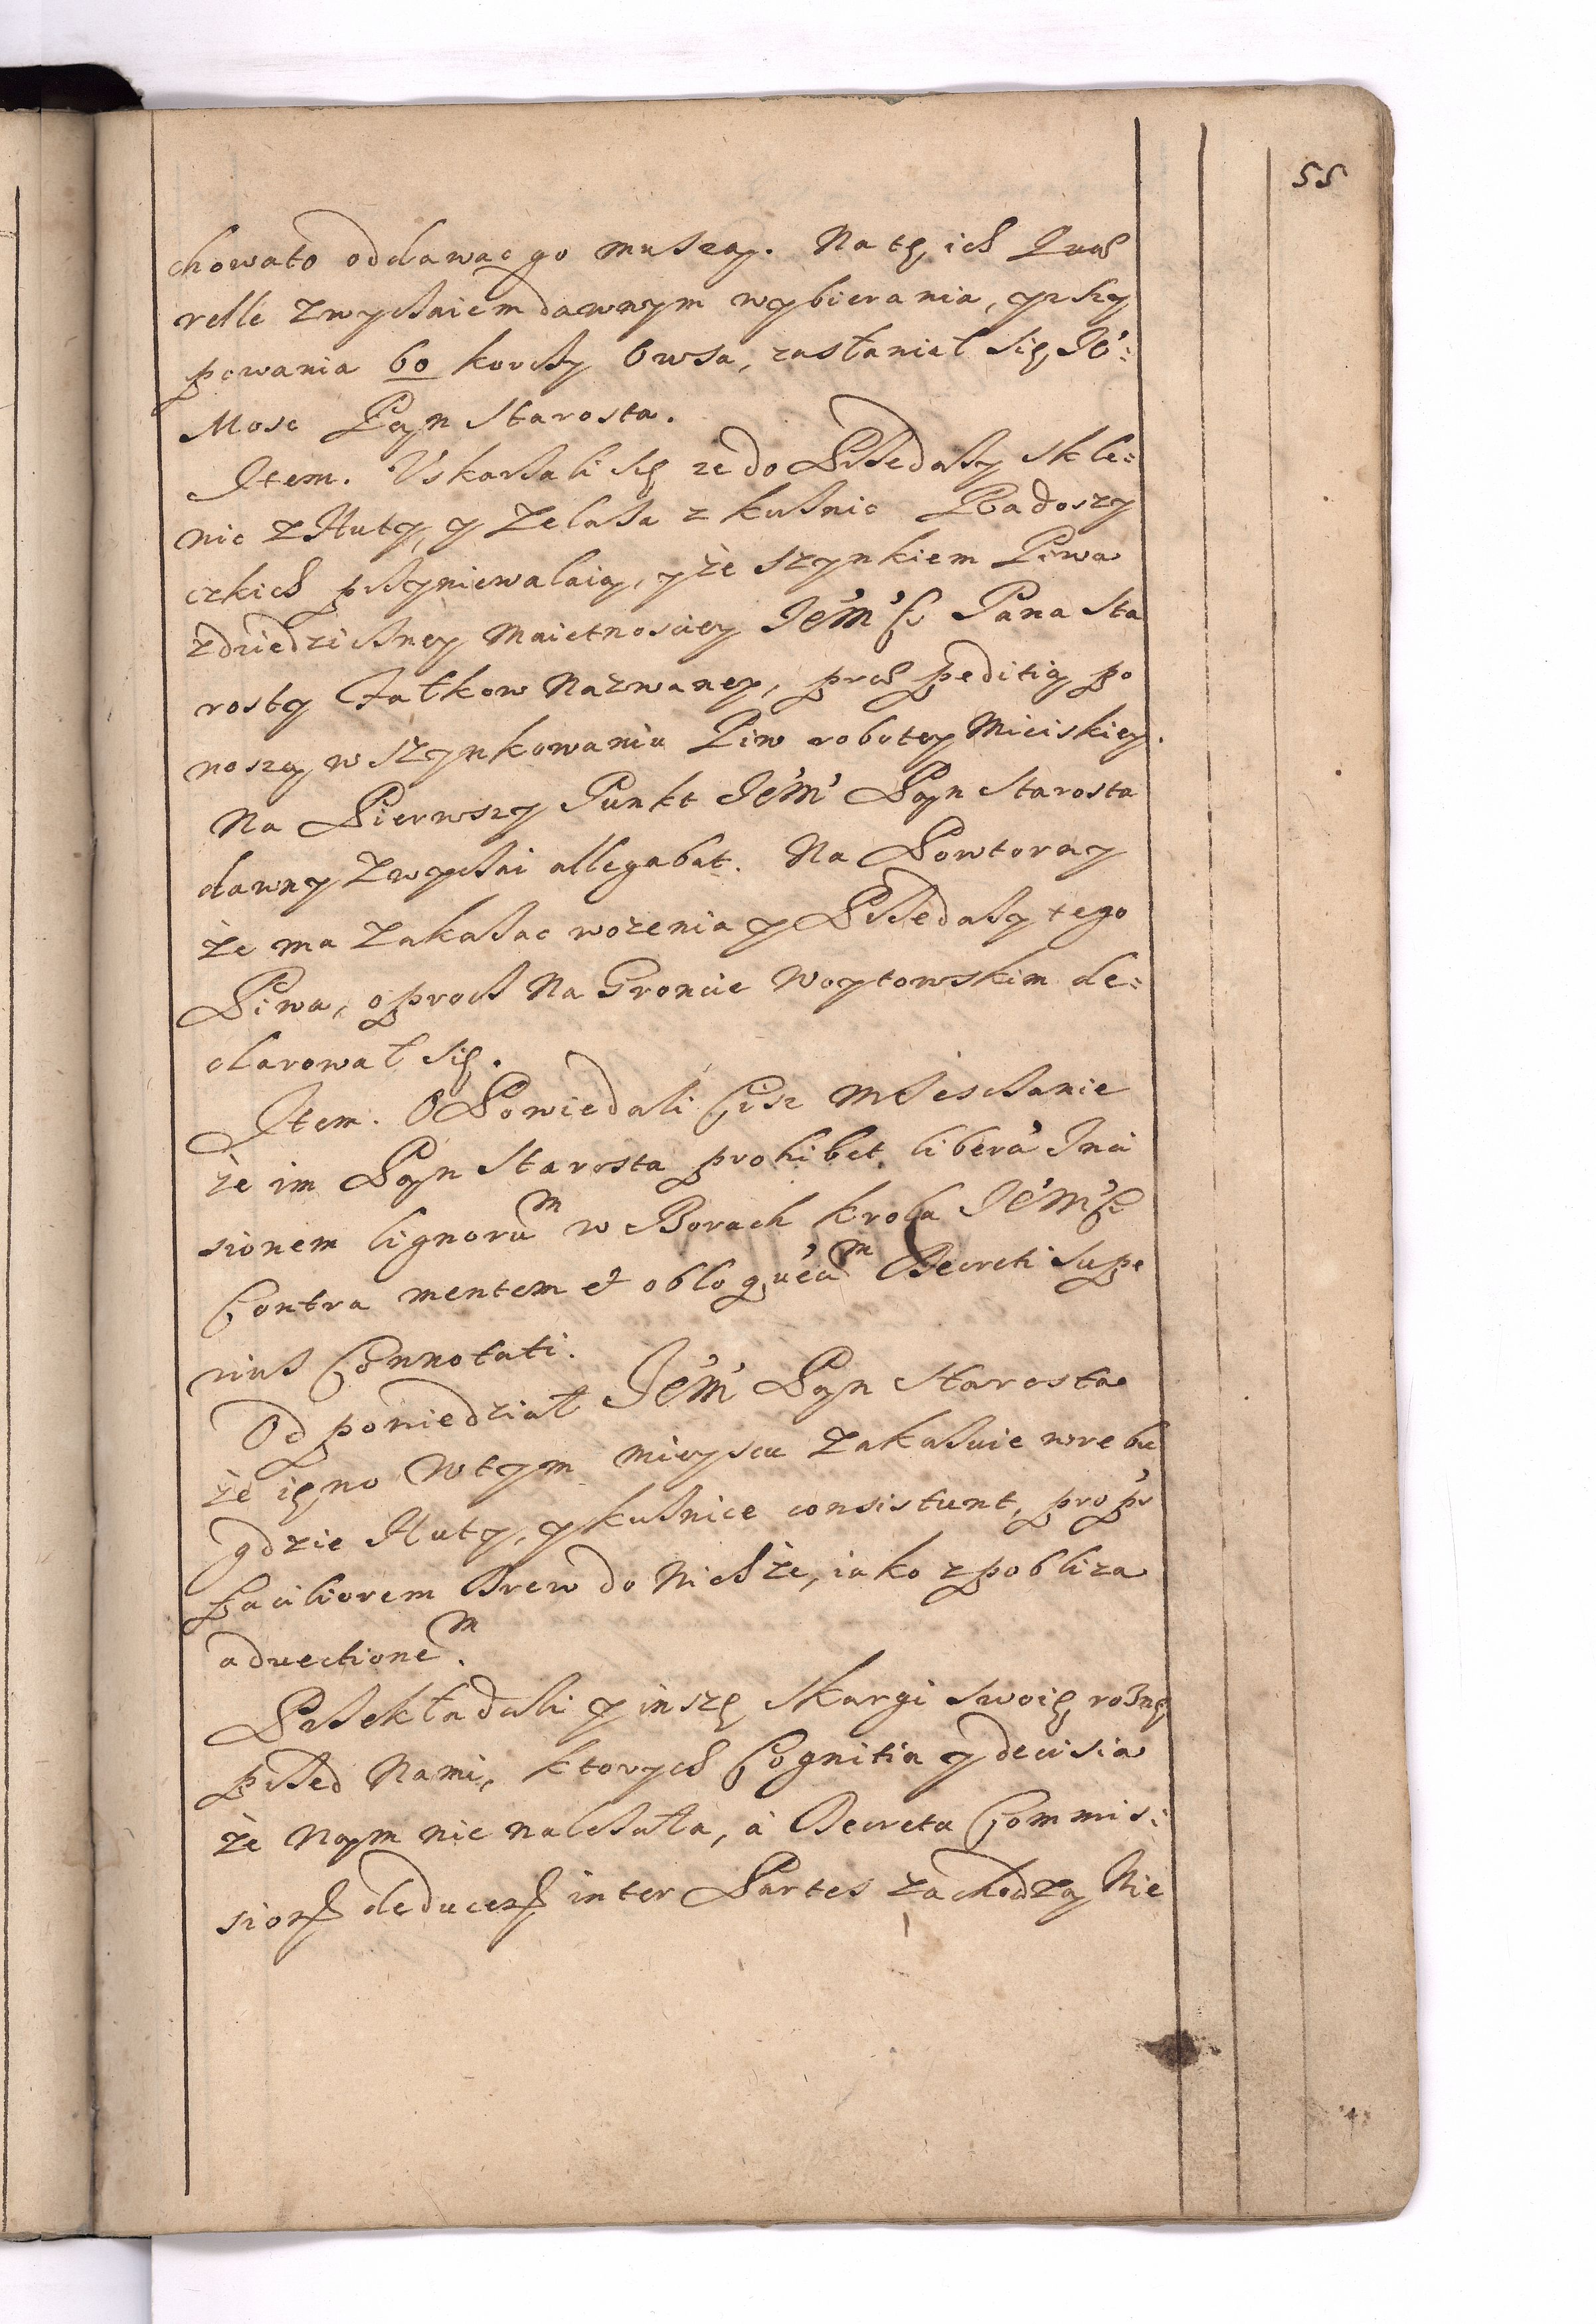 55
chowało oddawac go muszą. Na tę ich Que
relle zwyczaiem dawnym wybierania, y zsy
powania 60 korcy Owsa, zasłaniał się Je:
Mosc Pan Starosta.
Item. Uskarzali się ze do Przedazy skle:
nic z Huty, y Zelaza z kuznic Radoszy
ckich przyniewalaią, y że szynkiem Piwa
zdziedziczney Maietnosciey JeMsci Pana Sta
rosty Fałkow Nazwaney, praepeditią po
noszą w szynkowaniu Piw roboty Mieiskiey.
Na Pierwszy Punkt JeM Pan Starosta
dawny Zwyczai allegabat. Na Powtorny
że ma zakazac wozenia y Przedazy tego
Piwa, oprocz Na Groncie Woytowskim de:
clarował się.
Item. Opowiedali Cisz Miesczanie
że im Pan Starosta prohibet liberam Inci
sionem lignorum w Borach krola JeMsci
Contra mentem et obloquentiam Decreti supe
rius Connotati.
Odpowiedział JeM Pan Starosta
że ięno w tym mieyscu zakazuie wrębu
gdzie Huty, y kuznice consistunt, propter
faciliorem Drew do Nichże, iako z pobliza
advectionem.
Przekładali y inszę skargi swoię roznę
przed Nami, ktorych Cognitia y decisia
że Nam nie nalezała, a Decreta Commis:
sioris deducens inter Partes zachodzą Nie